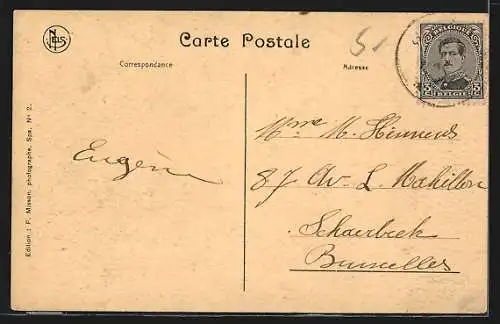 NELS
Carte Postale
Correspondance
Adresse
BELGIQUE
BELGIË
Edition : F. Misson, photographe, Spa. Nº 2.
Eugène
Mme M.
87 Av. L. Mahillon
Schaerbeek
Bruxelles